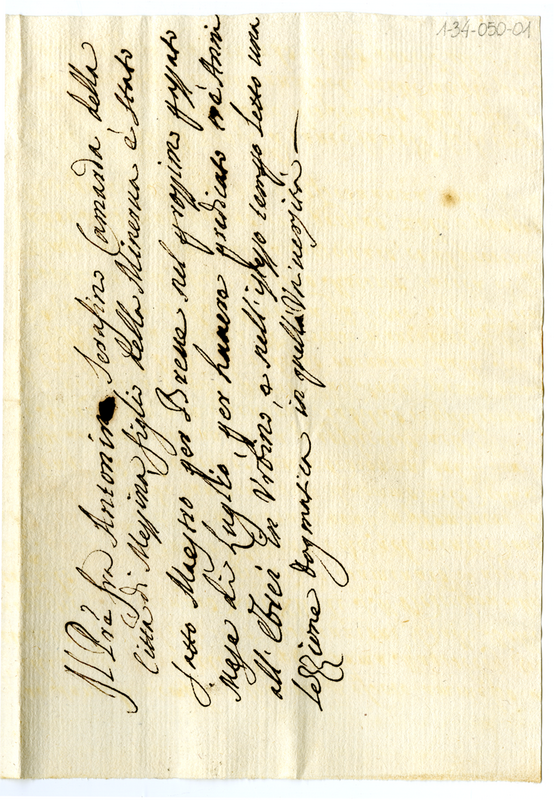 1-34-050-01
Il Pre fra Antonino Serafino Camarda della
Città di Messina figlio della Minerva è stato
fatto Maestro per Breve nel prossimo passato
Mese di Luglio per havere predicato trè Anni
all' Ebrei in Urbino, e nell' istesso tempo letto una
lezzione dogmatica in quella Università —